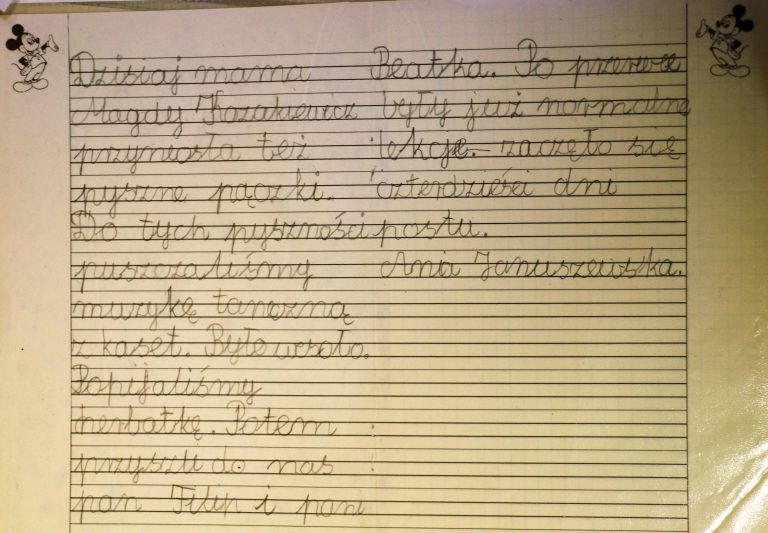 Dzisiaj mama
Magdy Kazakiewicz
przyniosła też
pyszne pączki.
Do tych pyszności
puszczaliśmy
muzykę taneczną
z kaset. Było wesoło.
Popijaliśmy
herbatkę. Potem
przyszli do nas
pan Filip i pani
Beatka. Po przerwie
były już normalne
lekcje. zaczęło się
czterdzieści dni
postu.
Ania Januszewska.